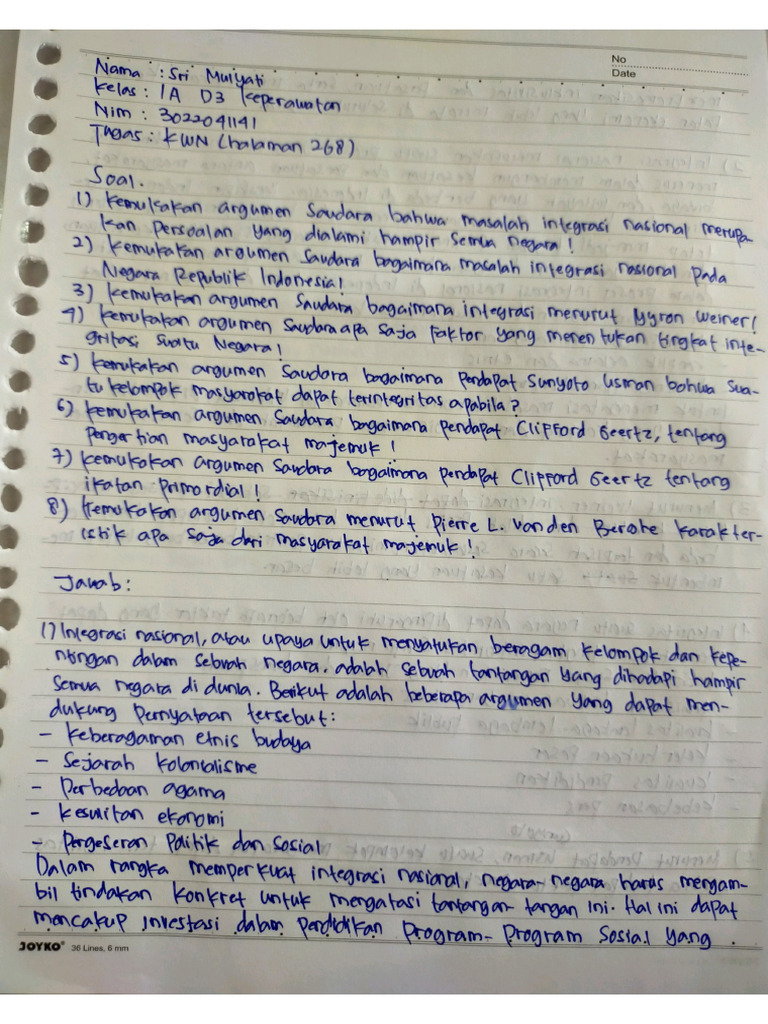 No
Date
Nama : Sri Mulyati
Kelas : 1A D3 Keperawatan
Nim : 3022041141
Tugas : KWN (halaman 268)
Soal.
1) Kemukakan argumen Saudara bahwa masalah integrasi nasional merupa-
kan Persoalan yang dialami hampir semua negara!
2) Kemukakan argumen Saudara bagaimana masalah integrasi nasional pada
Negara Republik Indonesia!
3) Kemukakan argumen Saudara bagaimana integrasi menurut Myron Weiner!
4) Kemukakan argumen Saudara apa saja faktor yang menentukan tingkat inte-
gritasi suatu Negara!
5) Kemukakan argumen Saudara bagaimana Pendapat Sunyoto Usman bahwa sua-
tu kelompok masyarakat dapat terintegritas apabila?
6) Kemukakan argumen Saudara bagaimana pendapat Clifford Geertz, tentang
Pengertian masyarakat majemuk!
7) Kemukakan argumen Saudara bagaimana pendapat Clifford Geertz tentang
ikatan Primordial!
8) Kemukakan argumen Saudara menurut Pierre L. Van den Berghe karakter-
istik apa saja dari masyarakat majemuk!
Jawab :
1) Integrasi nasional, atau upaya untuk menyatukan beragam kelompok dan kepe-
ntingan dalam sebuah negara. adalah sebuah tantangan yang dihadapi hampir
semua negara di dunia. Berikut adalah beberapa argumen yang dapat men-
dukung Pernyataan tersebut :
- Keberagaman etnis budaya
- Sejarah kolonialisme
- Perbedaan agama
- Kesulitan ekonomi
- Pergeseran Politik dan Sosial
Dalam rangka memperkuat integrasi nasional, negara-negara harus mengam-
bil tindakan konkret untuk mengatasi tantangan-tangan ini. Hal ini dapat
mencakup investasi dalam pendidikan program-program sosial yang
JOYKO 36 Lines, 6 mm